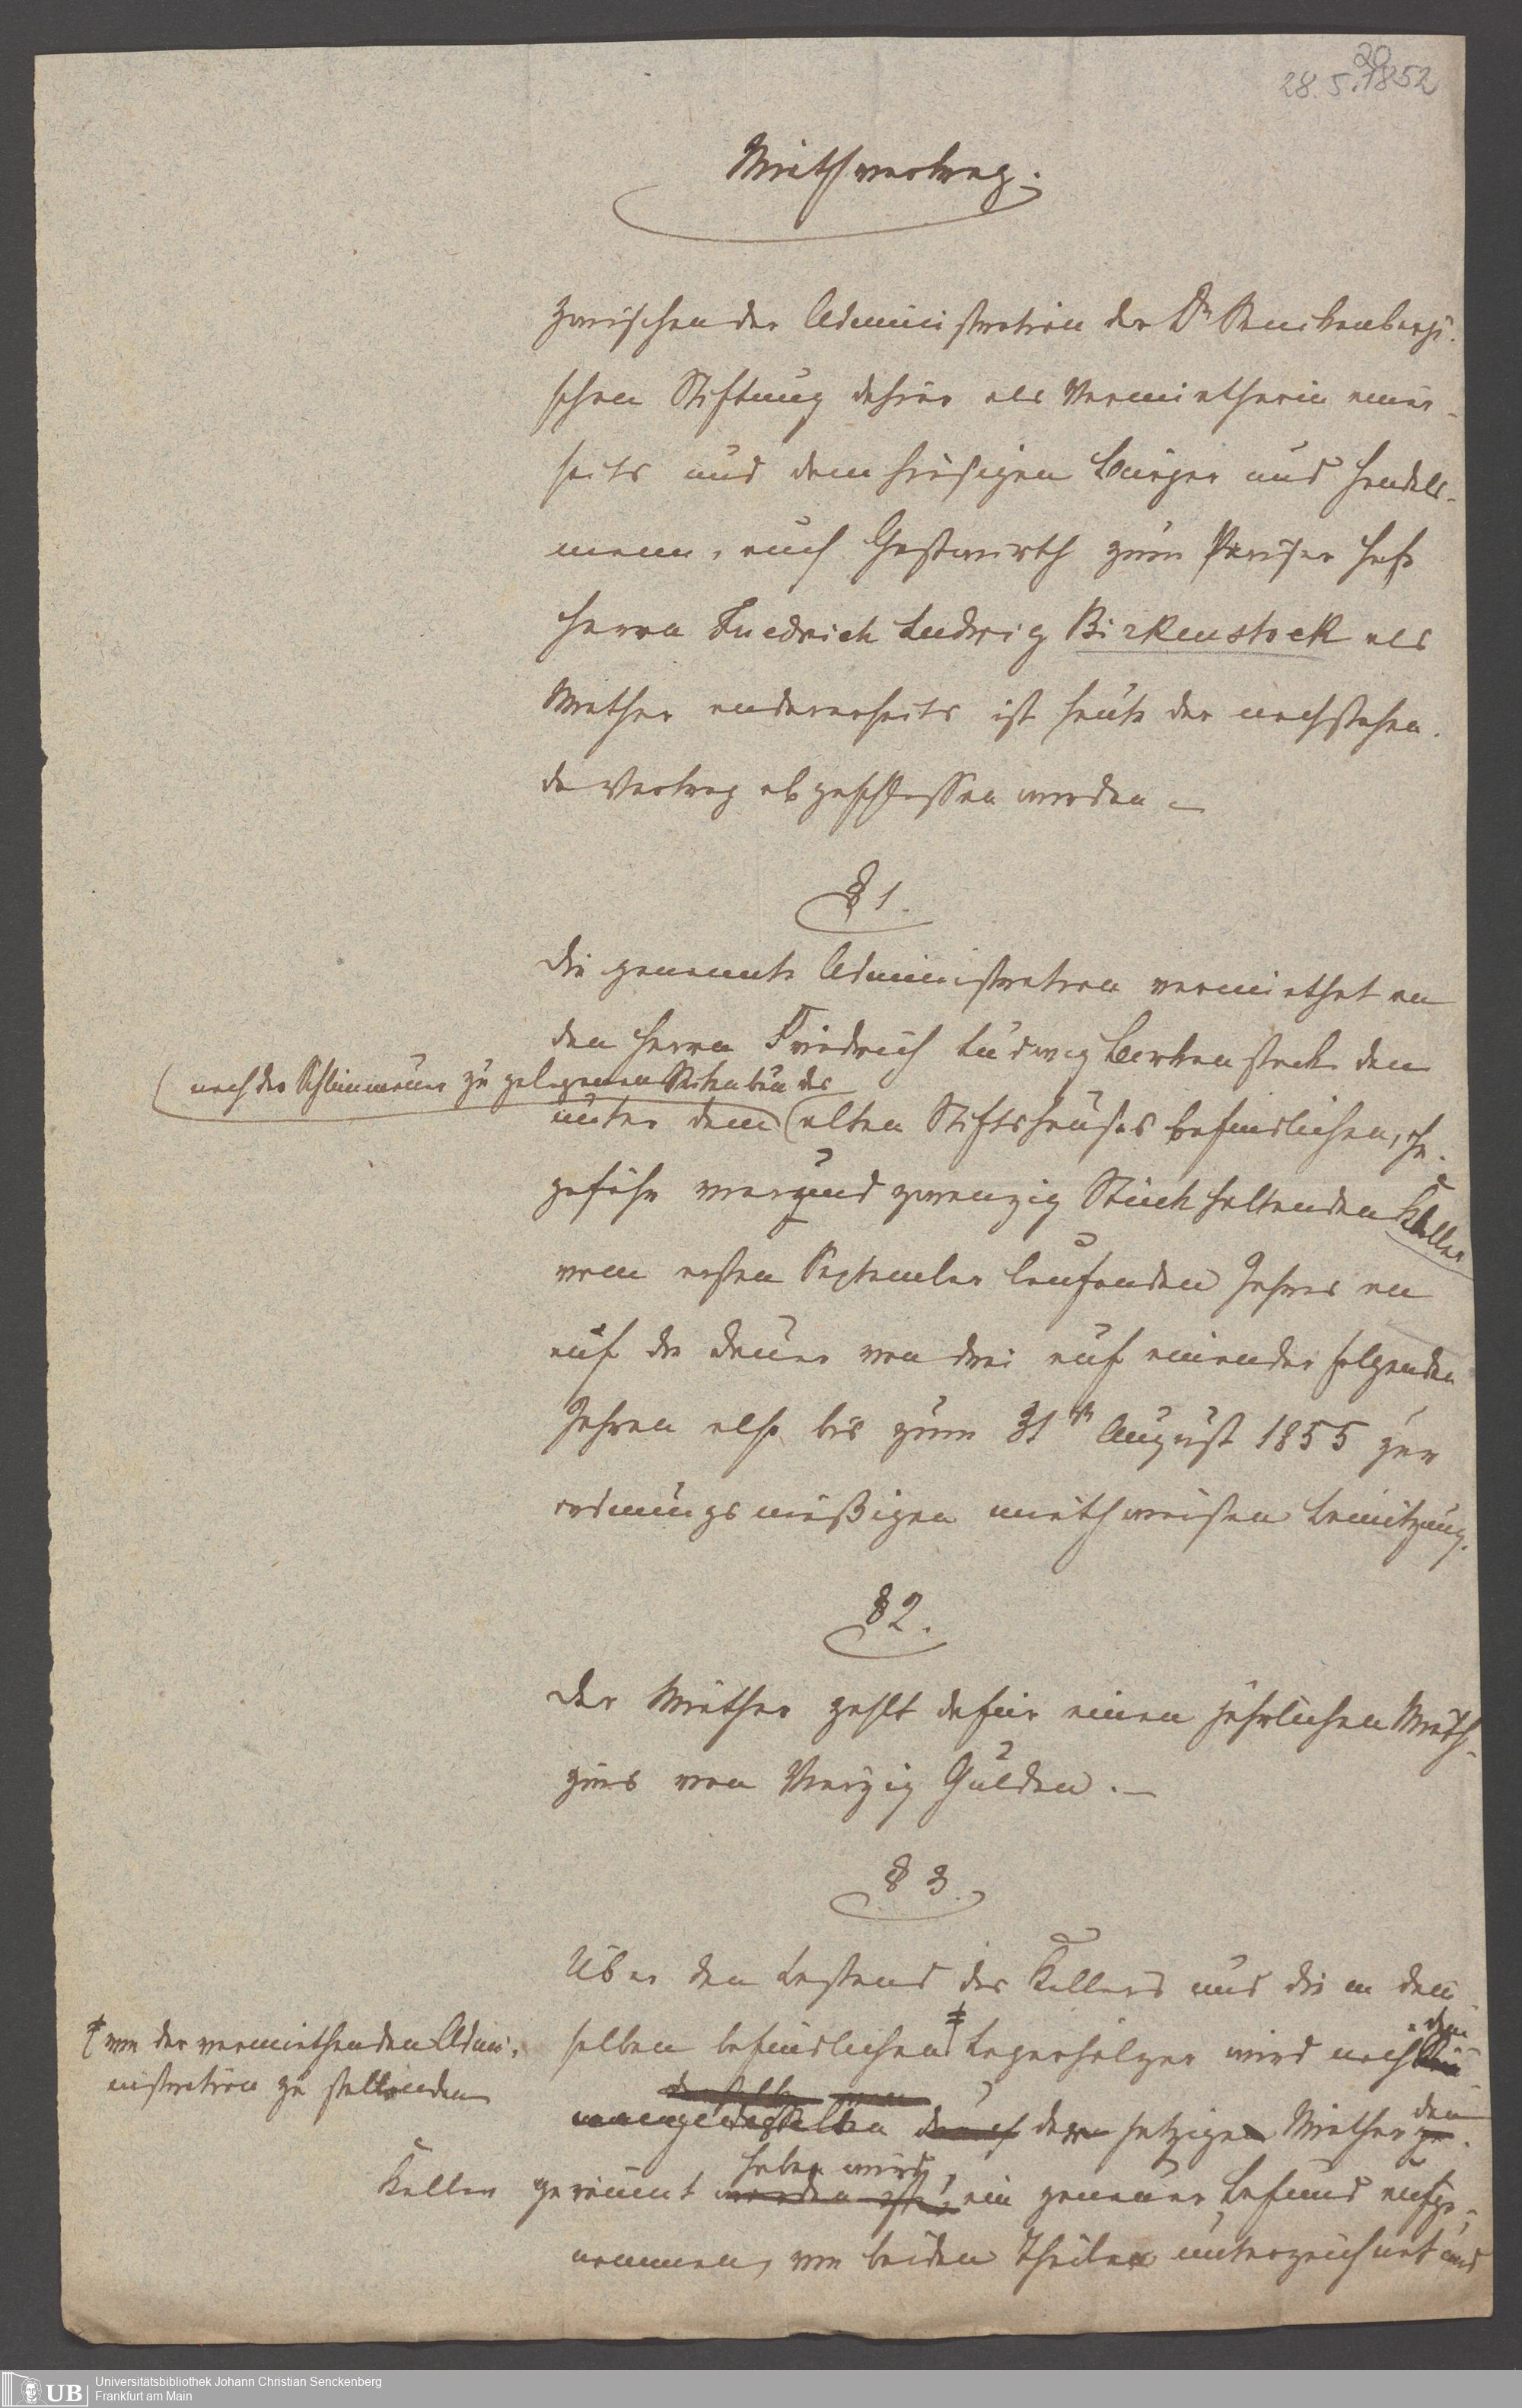 20
28.5.1852
Miethvertrag.
Zwischen der Administration der Dr. Senckenbergi-
schen Stiftung dahier als Vermietherin einer-
seits und dem hiesigen Bürger und Handels-
mann, auch Gastwirth zum Pariser Hof
Herrn Friedrich Ludwig Birkenstock als
Miether andererseits ist heute der nachstehen-
de Vertrag abgeschlossen worden.
§ 1.
Die genannte Administration vermiethet an
den Herrn Friedrich Ludwig Birkenstock den
nach der Schlimmauer zu gelegenen Seitenbau des
unter dem alten Stiftshauses befindlichen, ohn-
gefähr vierundzwanzig Stück haltenden Keller
vom ersten September laufenden Jahres an
auf die Dauer von drei auf einander folgenden
Jahren also bis zum 31n August 1855 zur
ordnungsmäßigen miethweisen Benutzung.
§ 2.
Der Miether zahlt dafür einen jährlichen Mieth-
zins von Vierzig Gulden.
§ 3.
Über den Bestand des Kellers und die in dem-
selben befindlichen ‡ Lagerhölzer wird nachdem
‡ von der vermiethenden Admi-
nistration zu stellenden
der jetzige Miether den
Keller geräumt haben wird, ein genauer Befund aufge-
nommen, von beiden Theilen unterzeichnet und
UB Universitätsbibliothek Johann Christian Senckenberg
Frankfurt am Main